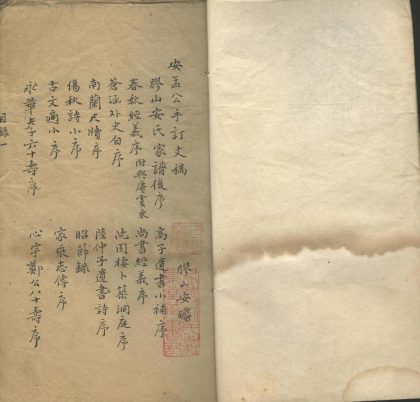 安孟公手訂文稿
膠山安璿
膠山安氏家譜後序
高子遺書小補序
春秋經義序 附與唐雲永
尚書經義序
蒼涵外史自序
沈國棟卜築洞庭序
南蘭尺牘序
陸仲子遺書詩序
傷秋詩小序
昭節錄
古文適小序
家乘志傳序
永華夫子六十壽序
心宇鄭公八十壽序
目錄一